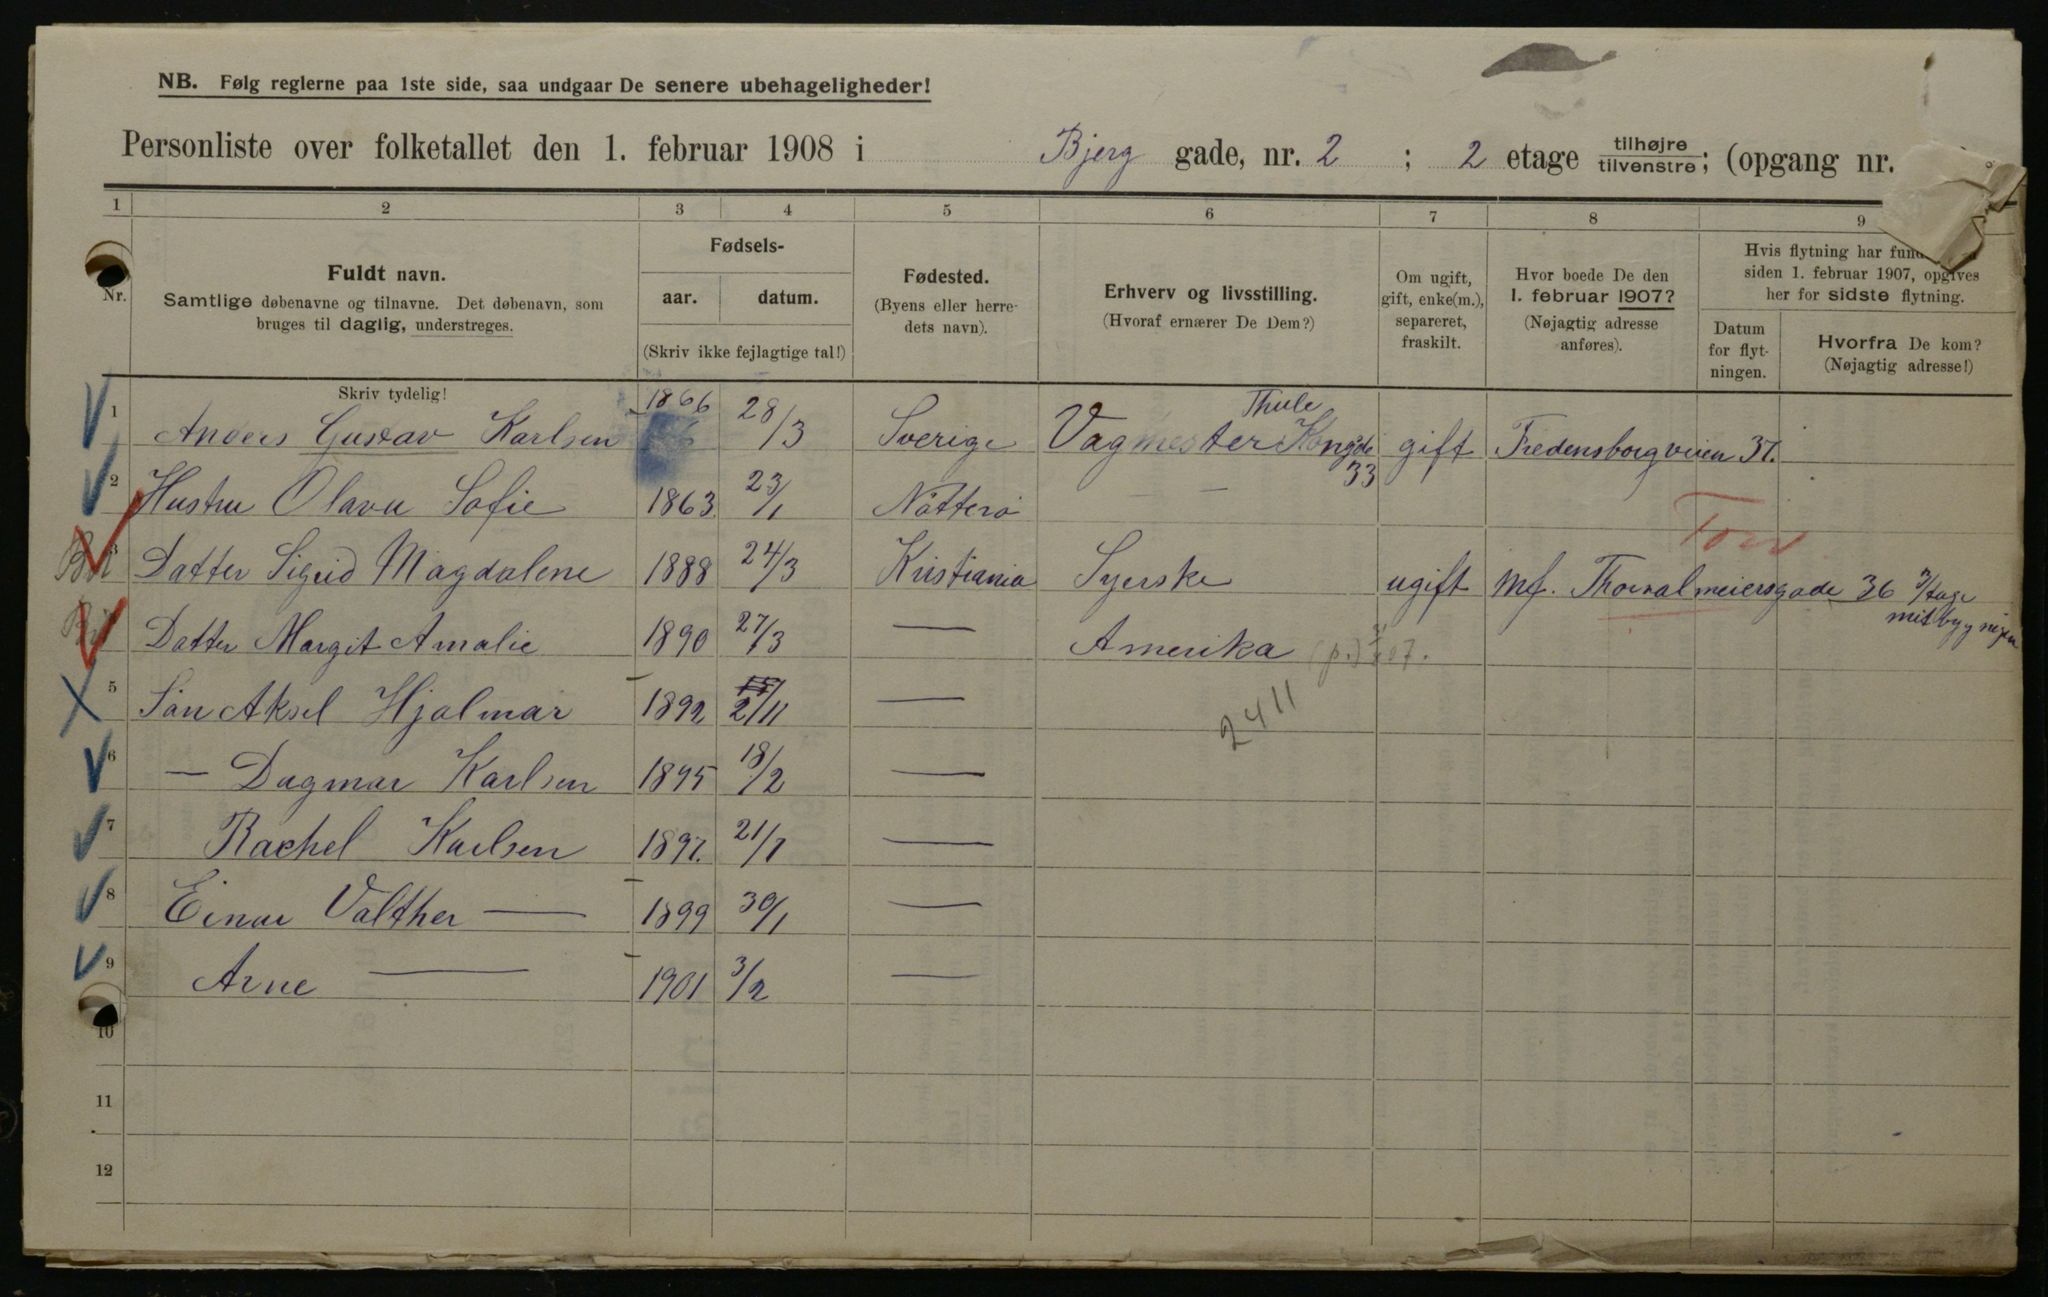 NB. Følg reglerne paa 1ste side, saa undgaar De senere ubehageligheder!
Personliste over folketallet den 1. februar 1908 i Bjerg gade, nr. 2 ; 2 etage tilhøjre tilvenstre; (opgang nr.
1 2 3 4 5 6 7 8 9
Nr.
Fuldt navn.
Samtlige døbenavne og tilnavne. Det døbenavn, som
bruges til daglig, understreges.
Fødsels-
aar. datum.
(Skriv ikke fejlagtige tal!)
Fødested.
(Byens eller herre-
dets navn).
Erhverv og livsstilling.
(Hvoraf ernærer De Dem?)
Om ugift,
gift, enke(m.),
separeret,
fraskilt.
Hvor boede De den
1. februar 1907?
(Nøjagtig adresse
anføres).
Hvis flytning har
siden 1. februar 1907, opgives
her for sidste flytning.
Datum
for flyt-
ningen.
Hvorfra De kom?
(Nøjagtig adresse!)
Skriv tydelig!
1 Anders Gustav Karlsen 1866 28/3 Sverige Vagmester Thule Kongsgde 33 gift Fredensborgveien 37.
2 Hustru Olava Sofie 1863 23/1 Nötterö — —
3 Datter Sigrid Magdalene 1888 24/3 Kristiania Syerske ugift Mf. Thorvalmeiersgade 36 3/tage
Datter Margit Amalie 1890 27/3 — Amerika (p.) 07.
5 Sön Aksel Hjalmar 1892 27/11 —
2411
6 — Dagmar Karlsen 1895 18/2 —
7 Rachel Karlsen 1897. 21/7 —
8 Einar Valther — 1899 30/1 —
9 Arne — 1901 3/2 —
10
11
12